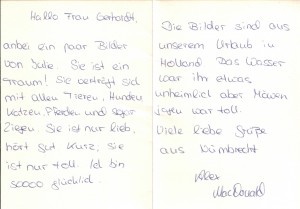 Hallo Frau Gerhardt,
anbei ein paar Bilder
von Jule. Sie ist ein
Traum! Sie verträgt sich
mit allen Tieren, Hunden
Katzen, Pferden und sogar
Ziegen. Sie ist nur lieb,
hört gut. Kurz, sie
ist nur toll. Ich bin
soooo glücklich.
Die Bilder sind aus
unserem Urlaub in
Holland. Das Wasser
war ihr etwas
unheimlich aber Möwen
jagen war toll.
Viele liebe Grüße
aus Nümbrecht
MacDonald